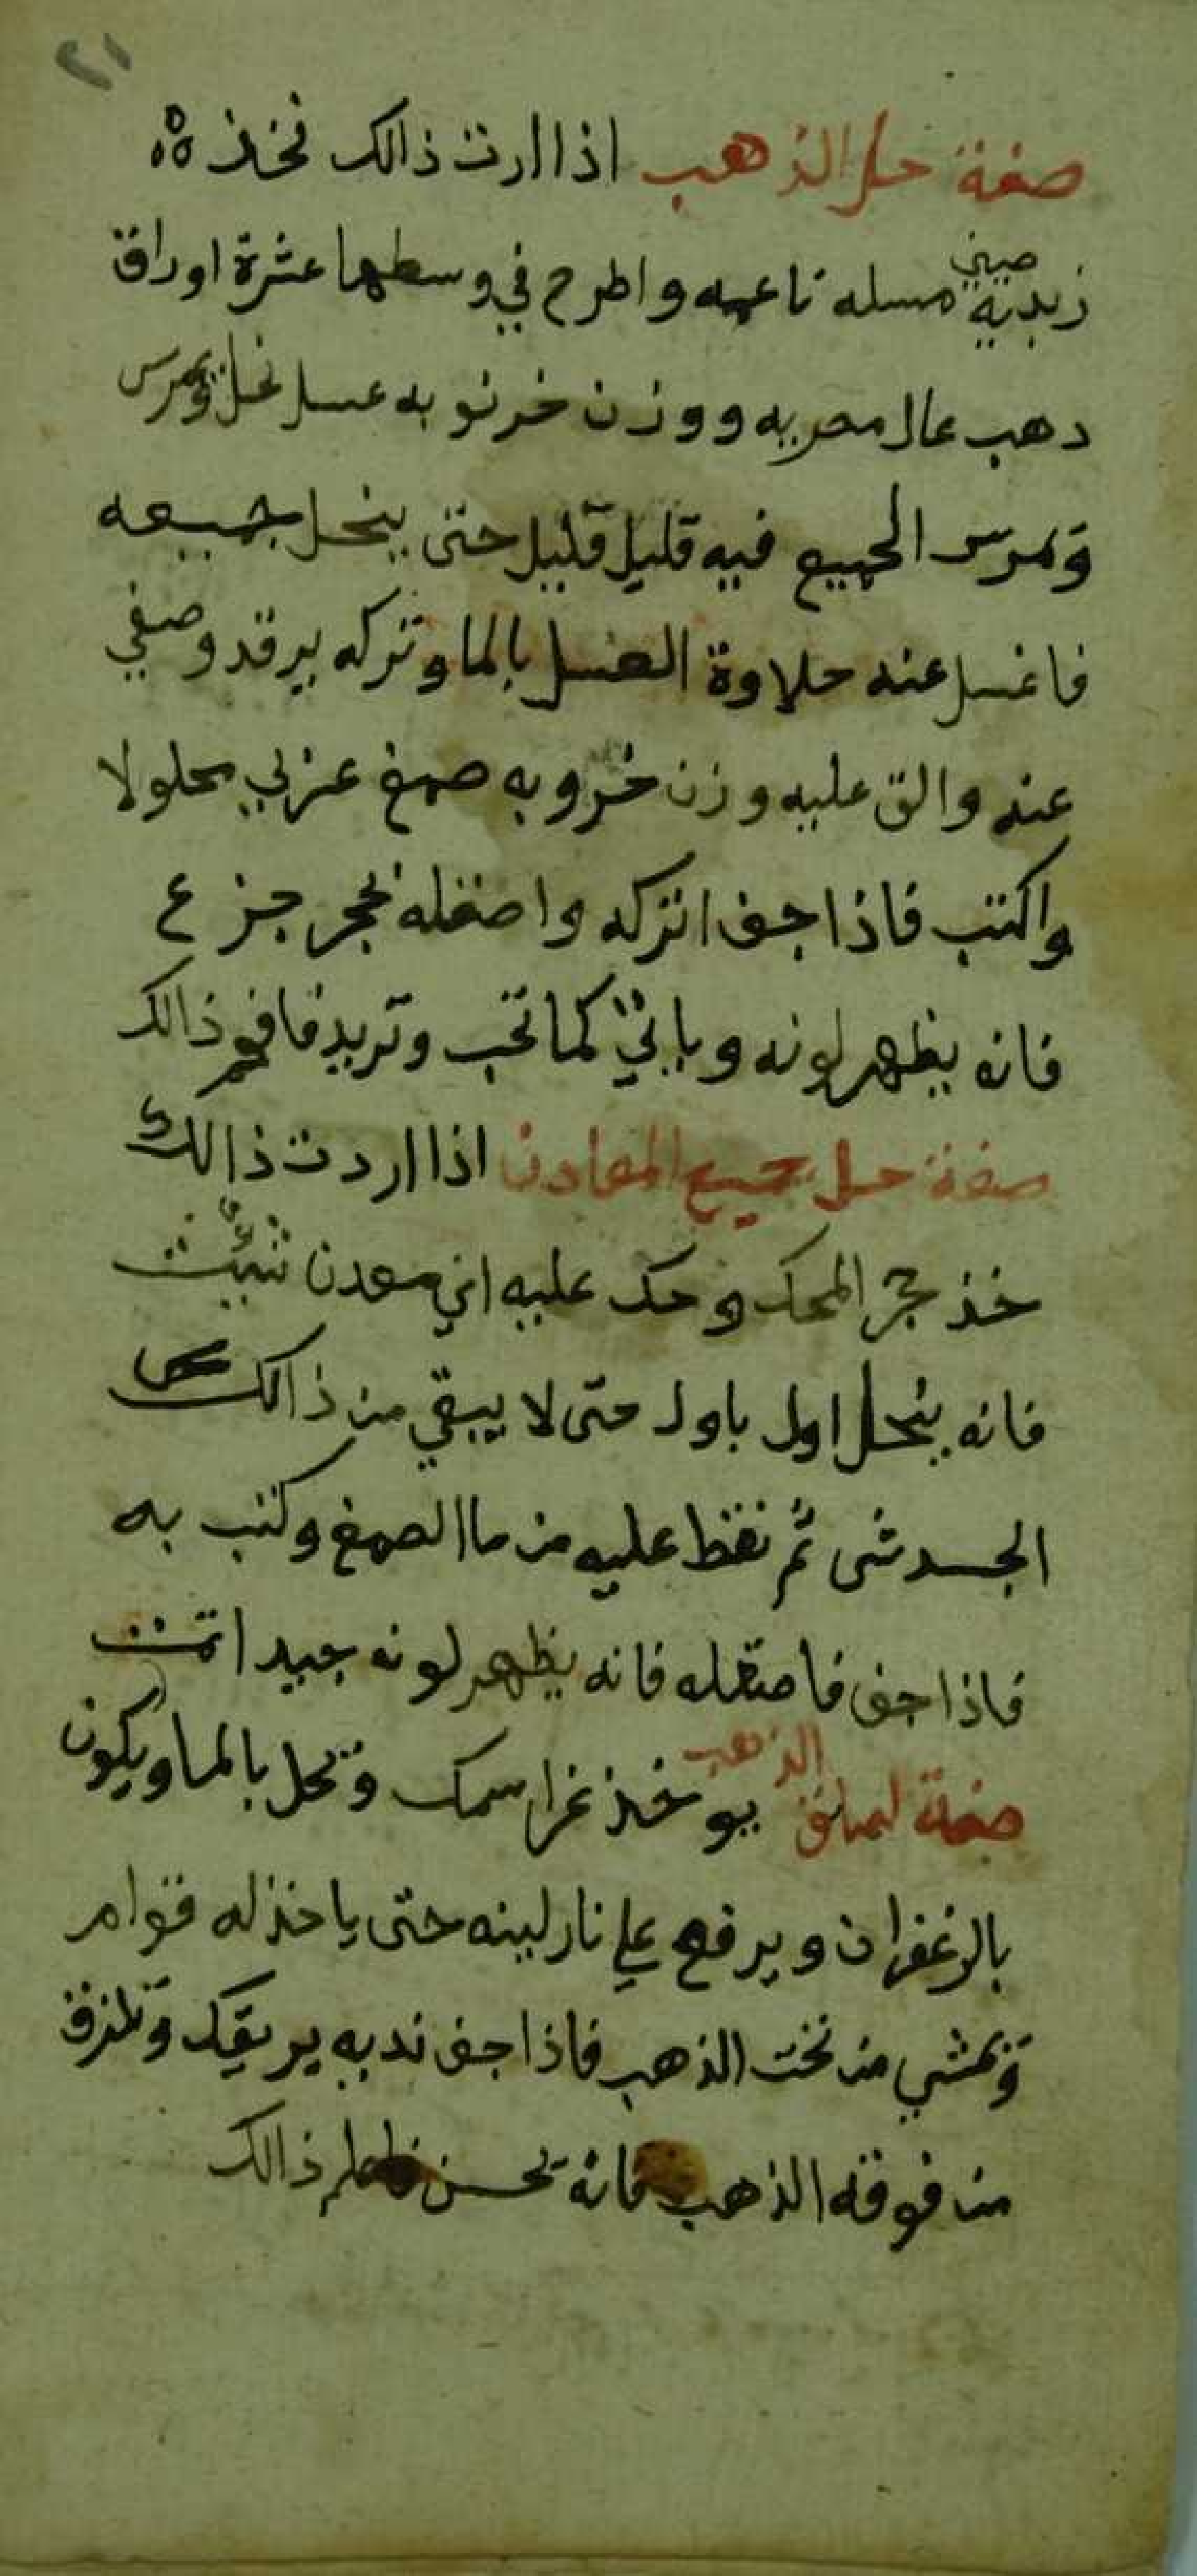 ٢١
صفة حل الذهب اذا اردت ذالك فخذ
زبدية صيني مسله ناعمه واطرح في وسطها عشرة اوراق
دهب عال مصريه ووزن خرنوبه عسل نحل ويمرس
ويمرس الجميع فيه قليل قليل حتى ينحل جميعه
فاغسل عنه حلاوة العسل بالما وتركه يرقد وصفي
عنه والق عليه وزن خروبه صمغ عربي محلولا
واكتب فاذا جف اتركه واصقله بحجر جزع
فانه يظهر لونه وياتي كما تحب وتريد فافهم ذالك
صفة حل جميع المعادن اذا اردت ذالك
خذ حجر المحك وحك عليه اي معدن شئت
فانه ينحل اول باول حتى لا يبقي من ذالك
الجسد شى ثم نقط عليه من ما الصمغ وكتب به
فاذا جف فاصقله فانه يظهر لونه جيدا تمت
صفة لصاق الذهب يوخذ غرا سمك وتحل بالما ويكون
بالزغفران ويرفع علي نار لينه حتى ياخذ له قوام
وتمشي من تحت الذهب فاذا جف نديه بريقك وتلزق
من فوقه الذهب فانه يحسن ذالك